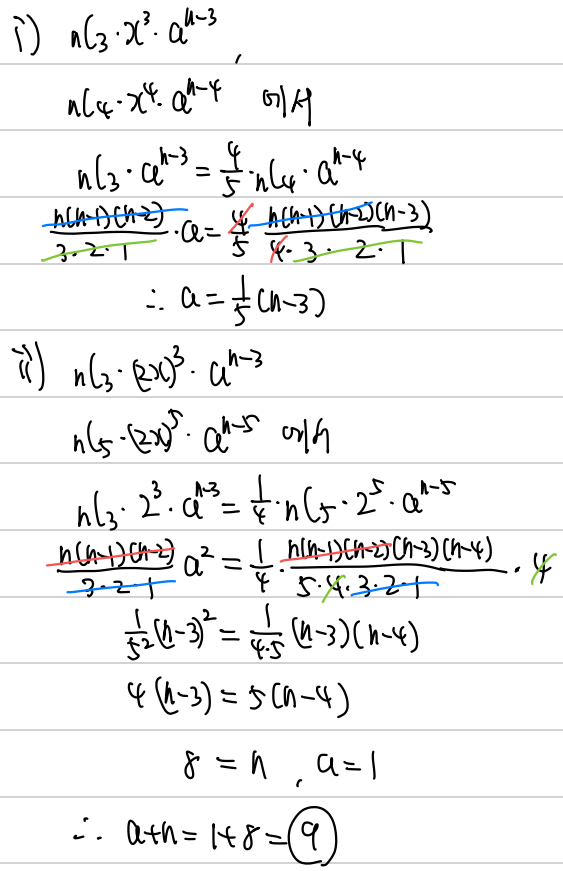 i) nC₃·x³·aⁿ⁻³,
nC₄·x⁴·aⁿ⁻⁴ 에서
nC₃·aⁿ⁻³ = 4/5·nC₄·aⁿ⁻⁴
n(n-1)(n-2)/3·2·1 ·a = 4/5 n(n-1)(n-2)(n-3)/4·3·2·1
∴ a = 1/5 (n-3)
ii) nC₃·(2x)³·aⁿ⁻³
nC₅·(2x)⁵·aⁿ⁻⁵ 에서
nC₃·2³·aⁿ⁻³ = 1/4·nC₅·2⁵·aⁿ⁻⁵
n(n-1)(n-2)/3·2·1 a² = 1/4·n(n-1)(n-2)(n-3)(n-4)/5·4·3·2·1 ·4
1/5² (n-3)² = 1/4·5 (n-3)(n-4)
4(n-3) = 5(n-4)
8 = n, a = 1
∴ a+n = 1+8 = 9